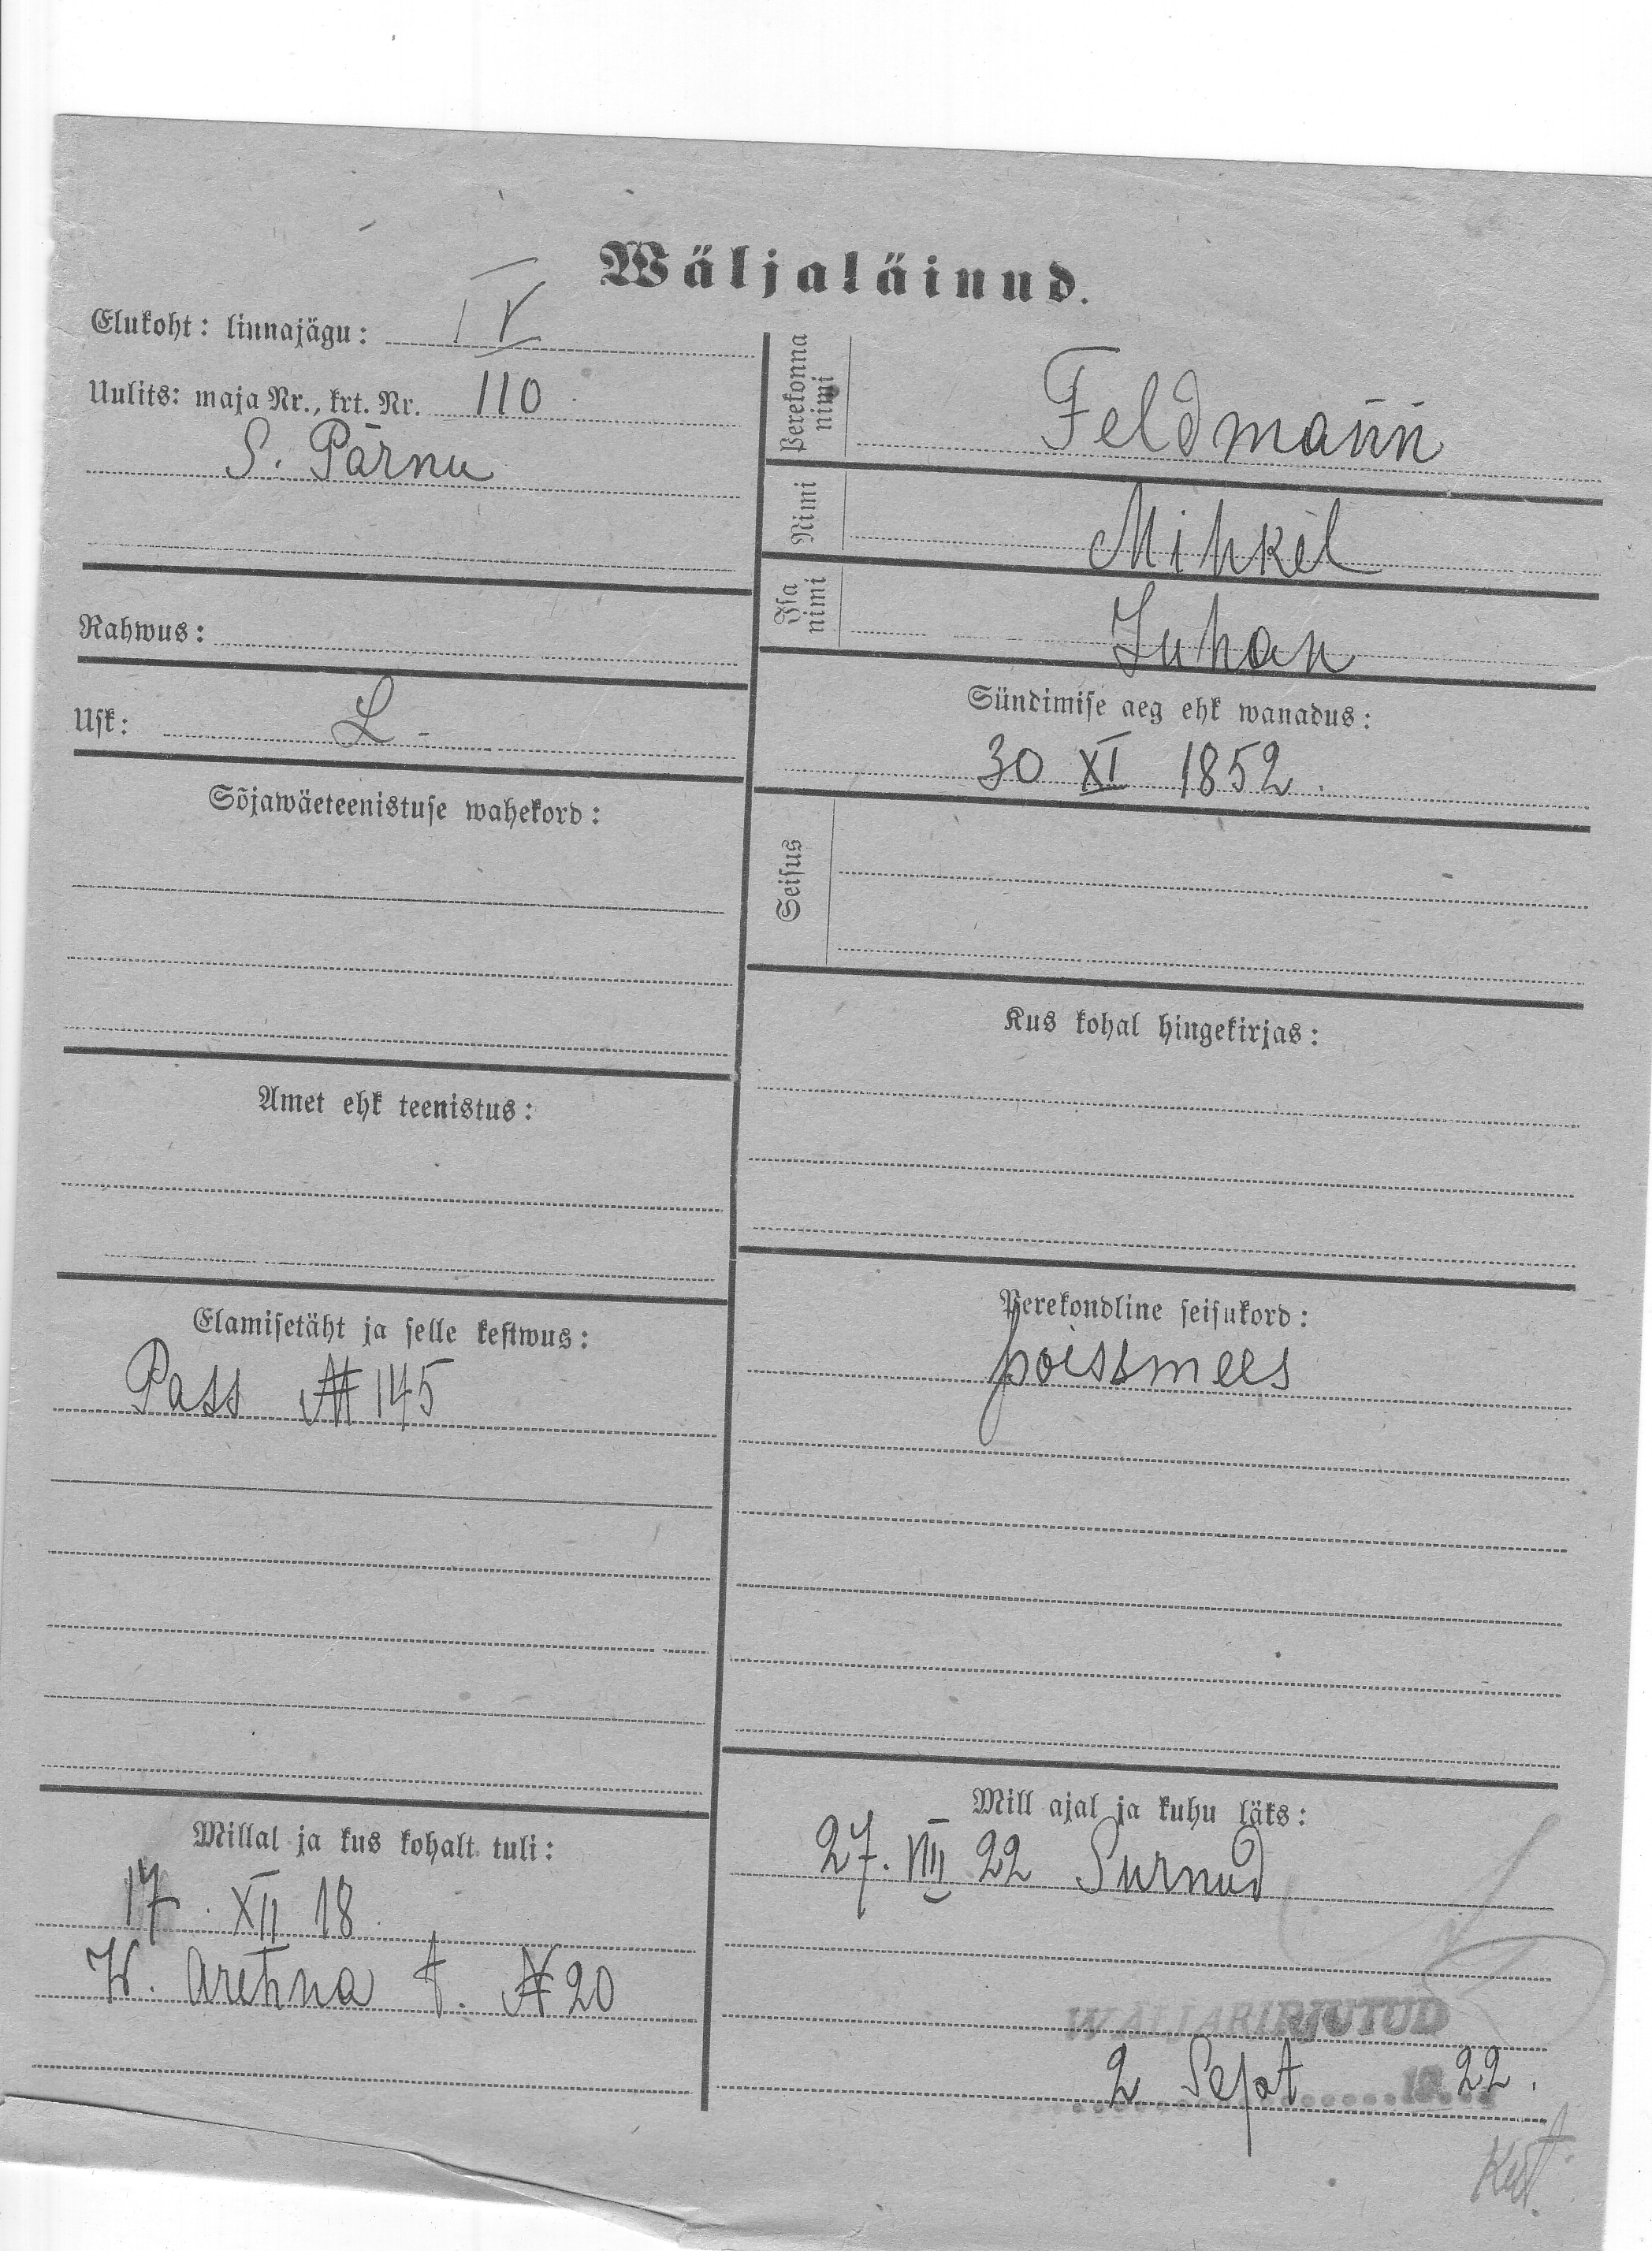 Wäljaläinud.
Elukoht: linnajägu: IV
Uulits: maja Nr., krt. Nr. 110
S. Pärnu
Rahwus:
Usk: L -
Sõjawäeteenistuse wahekord:
Amet ehk teenistus:
Elamisetäht ja selle kestwus:
Pass № 145
Millal ja kus kohalt tuli:
17. XII 18.
W. Arehna t. № 20
Perekonna
nimi
Feldmann
Nimi
Mihkel
Isa
nimi
Juhan
Sündimise aeg ehk wanadus:
30 XI 1852.
Seisus
Kus kohal hingekirjas:
Perekondline seisukord:
poissmees
Mill ajal ja kuhu läks:
27. VIII 22 Surnud
WÄLJAKIRJUTUD
2 Sept 1922.